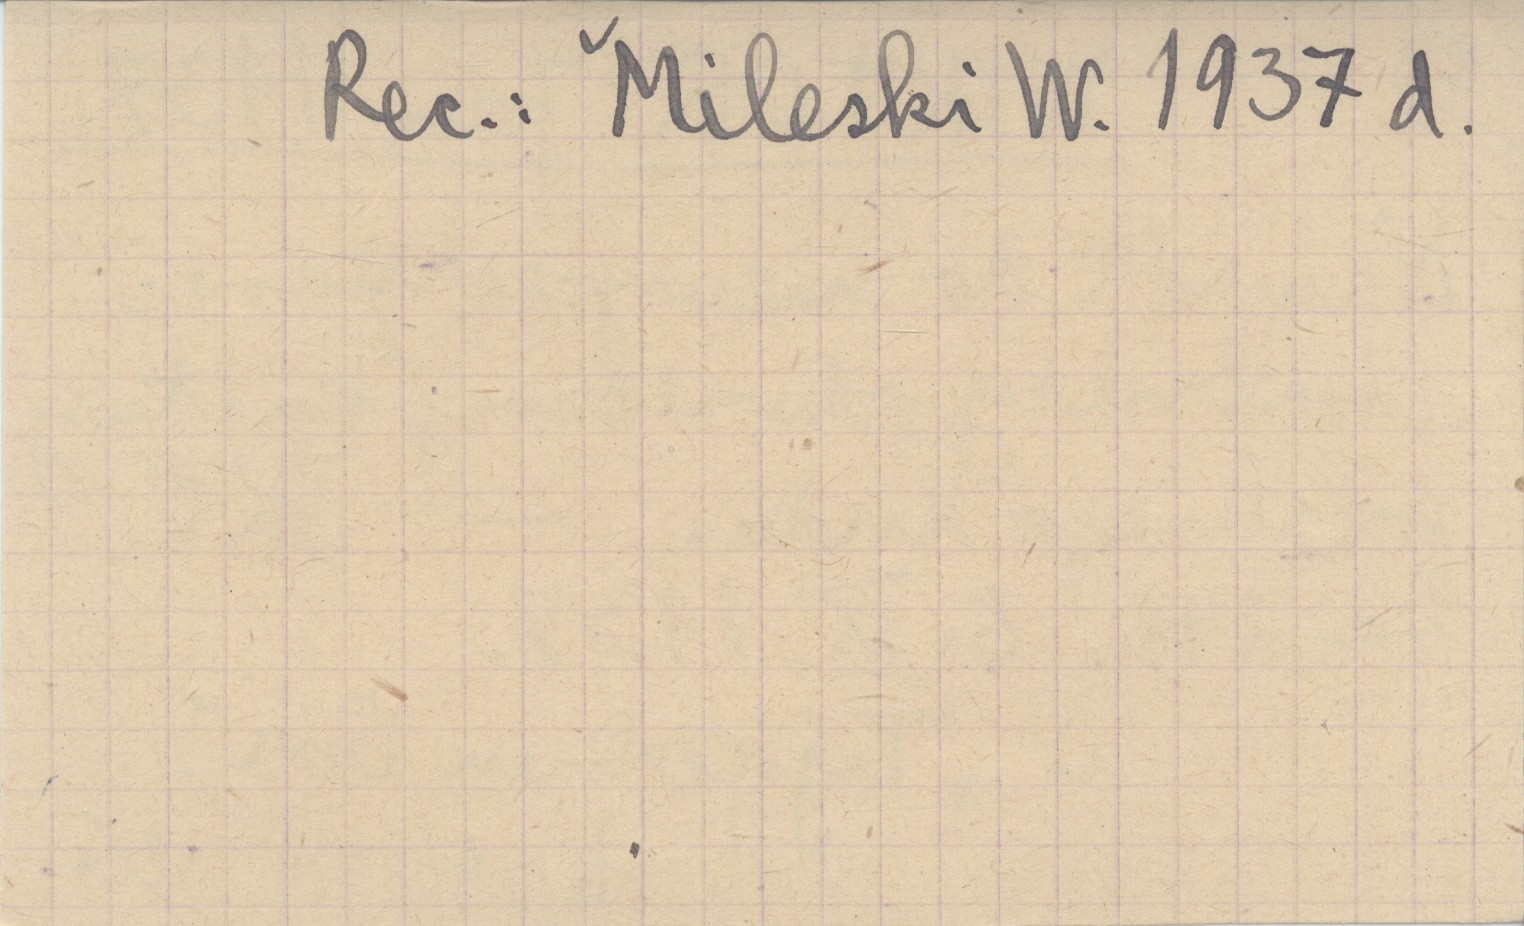 Rec.: ˇMileski W. 1937 d.